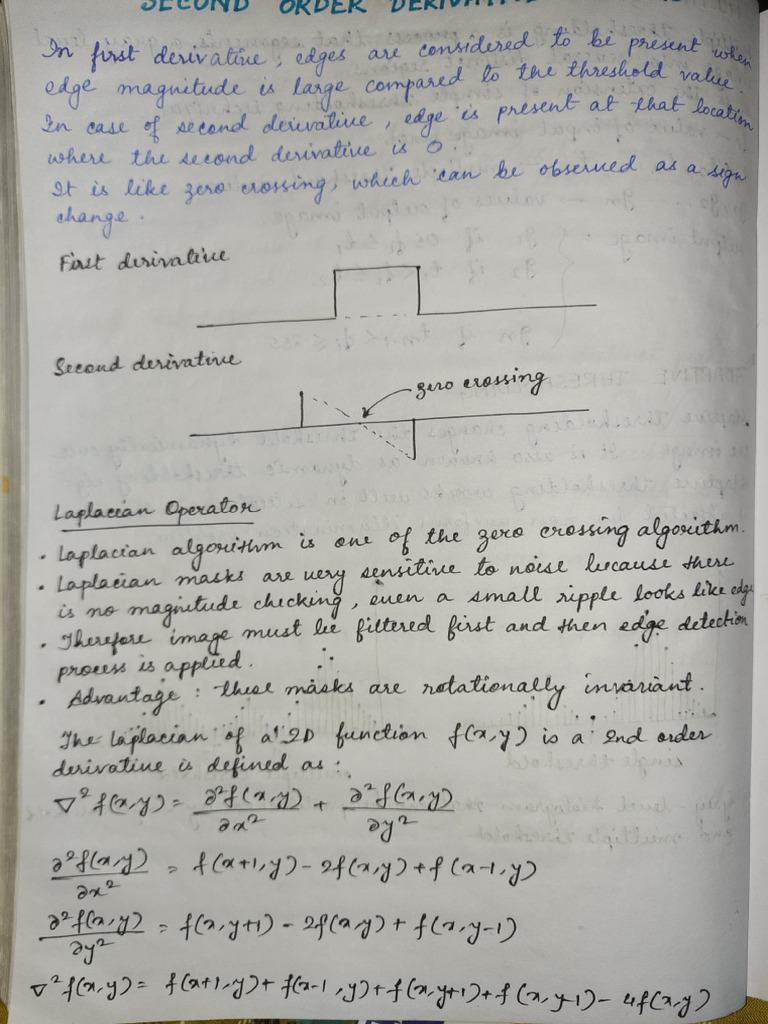 SECOND ORDER DERIVATIVE
In first derivative, edges are considered to be present when
edge magnitude is large compared to the threshold value.
In case of second derivative, edge is present at that location
where the second derivative is 0.
It is like zero crossing, which can be observed as a sign
change.
First derivative
Second derivative
zero crossing
Laplacian Operator
• Laplacian algorithm is one of the zero crossing algorithm.
• Laplacian masks are very sensitive to noise because there
is no magnitude checking, even a small ripple looks like edge
• Therefore image must be filtered first and then edge detection
process is applied.
• Advantage : these masks are rotationally invariant.
The Laplacian of a 2D function f(x,y) is a 2nd order
derivative is defined as :
∇²f(x,y) = ∂²f(x,y)/∂x² + ∂²f(x,y)/∂y²
∂²f(x,y)/∂x² = f(x+1,y) - 2f(x,y) + f(x-1,y)
∂²f(x,y)/∂y² = f(x,y+1) - 2f(x,y) + f(x,y-1)
∇²f(x,y) = f(x+1,y) + f(x-1,y) + f(x,y+1) + f(x,y-1) - 4f(x,y)